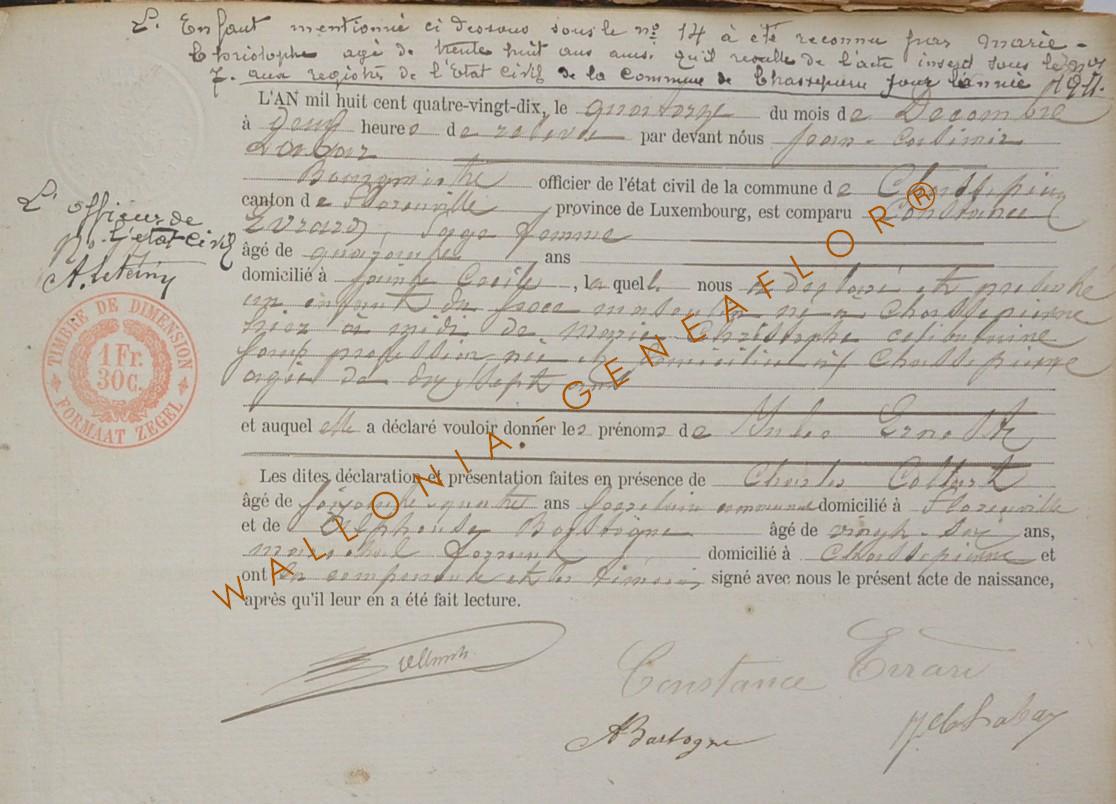 L'Enfant mentionné ci dessous sous le nº 14 à été reconnu par Marie-
Christophe agé de trente huit ans ainsi qu'il résulte de l'acte inseré sous le nº
7. aux registres de l'Etat Civil de la Commune de Chassepierre pour l'année
L'AN mil huit cent quatre-vingt-dix, le quatorze du mois de Decembre
à deux heures de relevée par devant nous Jean-Casimir
Labar
Bourgmestre officier de l'état civil de la commune de Chassepierre
canton de Florenville province de Luxembourg, est comparu Constance
Evrard, Sage femme
âgé de quarante ans
domicilié à Sainte Cécile, laquelle nous a déclaré et présenté
un enfant du sexe masculin né à Chassepierre
hier à midi de Marie Christophe célibataire
sans profession née et domiciliée à Chassepierre
agée de dix sept ans
et auquel elle a déclaré vouloir donner les prénoms de Jules Ernest
Les dites déclaration et présentation faites en présence de Charles Collart
âgé de soixante quatre ans secrétaire communal domicilié à Florenville
et de Alphonse Bastogne âgé de vingt-six ans,
maréchal ferrant domicilié à Chassepierre et
ont la comparante et les témoins signé avec nous le présent acte de naissance,
après qu'il leur en a été fait lecture.
L'officier de
l'état civil
TIMBRE DE DIMENSION
1 Fr.
30c.
FORMAAT ZEGEL
WALLONIA-GENEAFLOR®
Constance Evrard
ABastogne
JCLabar